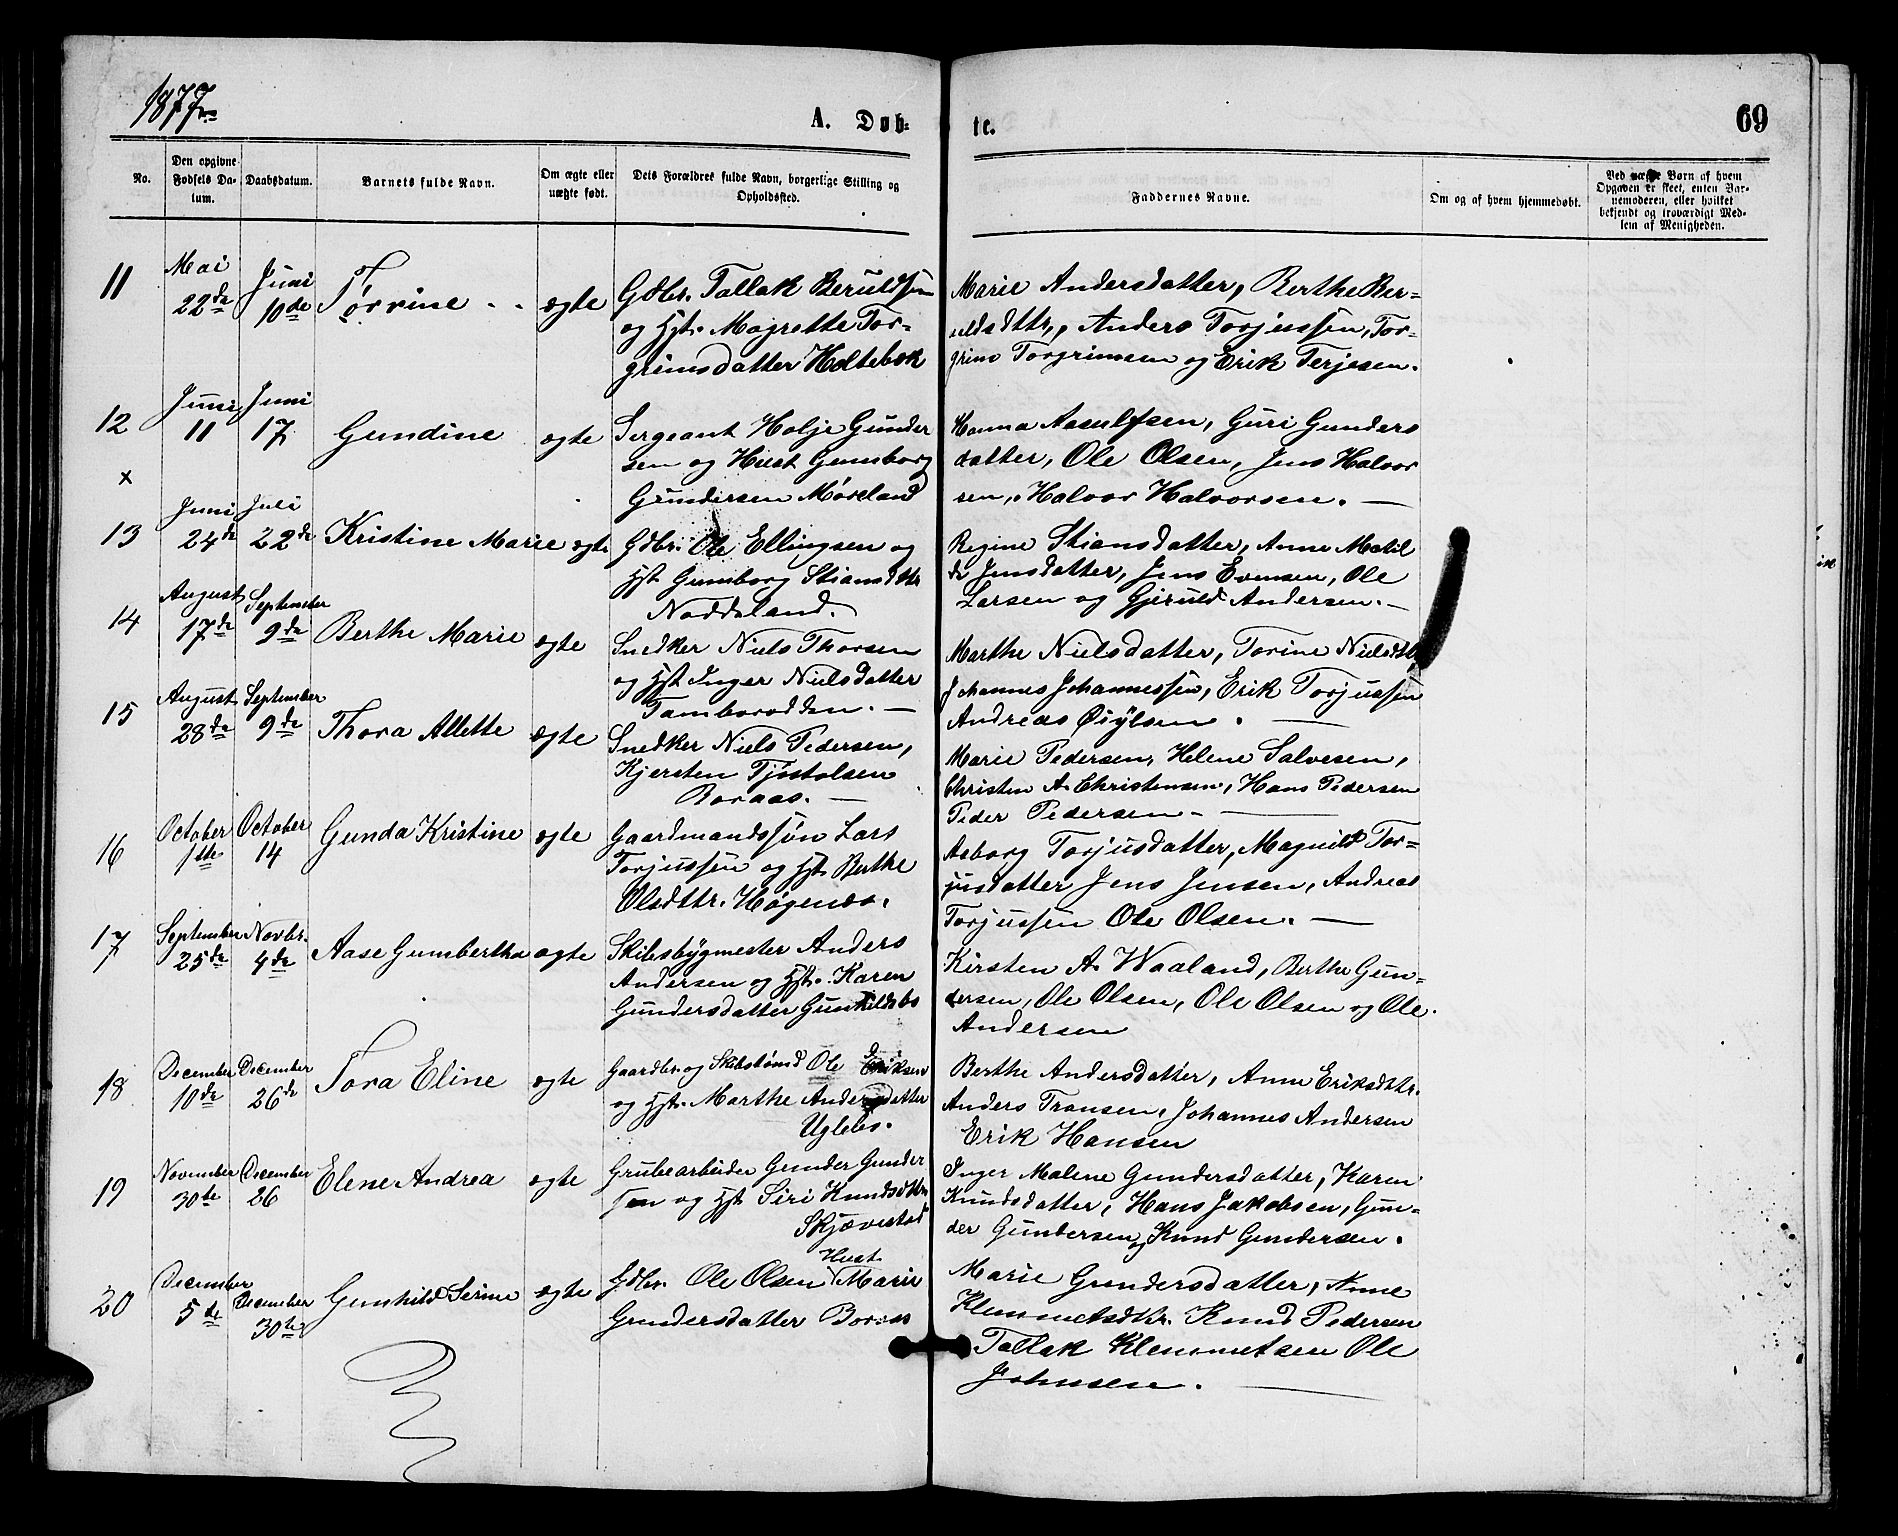 1877
A. Døb-
te.
69
No.
Den opgivne Fødsels Da-tum.
Daabsdatum.
Barnets fulde Navn.
Om ægte eller uægte født.
Dets Forældres fulde Navn, borgerlige Stilling og Opholdssted.
Faddernes Navne.
Om og af hvem hjemmedøbt.
Ved uægte Børn af hvem Opgaven er skeet, enten Bar-nemoderen, eller hvilket bekjendt og troværdigt Med-lem af Menigheden.
11 Mai 22de Juni 10de Tørrine ægte
Gdbr. Tallak Beruldsen
og Hst. Magrette Tor-
grimsdatter Holtebek
Marie Andersdatter, Berthe Ber-
uldsdttr, Anders Torjussen, Tor-
grim Torgrimsen og Erik Terjesen.
12 Juni 11 Juni 17 Gundine ægte
x
Sergeant Halje Gunder
sen og Hust Gunborg
Gundersen Møreland
Hanna Aasulfsen, Guri Gunders
datter, Ole Olsen, Jens Halvor
sen, Halvor Halvorsen. —
13 Juni 24de Juli 22de Kristine Marie ægte
Gdbr. Ole Ellingsen og
Hst Gunborg Stiansdttr
Naddeland.
Regine Stiansdatter, Anne Matil
de Jensdatter, Jens Evensen, Ole
Larsen og Gjeruld Andersen. —
14 August 17de September 9de Berthe Marie ægte
Snedker Niels Thorsen
og Hst Inger Nielsdatter
Tamborodden. —
Marthe Nielsdatter, Torine Nielsdtt
Johannes Johannessen, Erik Torjussen
Andreas
15 August 28de September 9de Thora Allette ægte
Snedker Niels Pedersen,
Kjersten Tjøstolsen
Boraas. —
Marie Pedersen, Helene Salvesen,
Christen A. Christensen, Hans Pedersen
Peder Pedersen —
16 October 1ste October 14 Gunda Kristine ægte
Gaardmandssøn Lars
Torjussen og Hst. Berthe
Olsdttr. Høgenæs.
Asborg Torjusdatter, Magnild Tor-
jusdatter Jens Jensen, Andreas
Torjussen Ole Olsen. —
17 September 25de Novbr. 4de Aase Gumbertha ægte
Skibsbygmester Anders
Andersen og Hst. Karen
Gundersdatter Gunhildsbo
Kirsten A. Waaland, Berthe Gun-
dersen, Ole Olsen, Ole Olsen og Ole
Andersen
18 December 10de December 26de Tora Eline ægte
Gaardbr. og Skibstømd Ole Eriksen
og Hst. Marthe Andersdatter
Uglebo.
Berthe Andersdatter, Anne Eriksdttr.
Anders Transen, Johannes Andersen
Erik Hansen
19 November 30te December 26 Elene Andrea ægte
Grubearbeider Gunder Gunder
sen og Hst Siri Knudsdttr
Skjævestad
Inger Malene Gundersdatter, Karen
Knudsdatter, Hans Jakobsen, Gun-
der Gundersen og Knud Gundersen.
20 December 5te December 30te Gunhild Serine ægte
Gdbr. Ole Olsen Hust Marie
Gundersdatter Boraas
Marie Gundersdatter, Anne
Klemmetsdttr. Knud Pedersen
Tallak Klemmetsen Ole
Johnsen. —